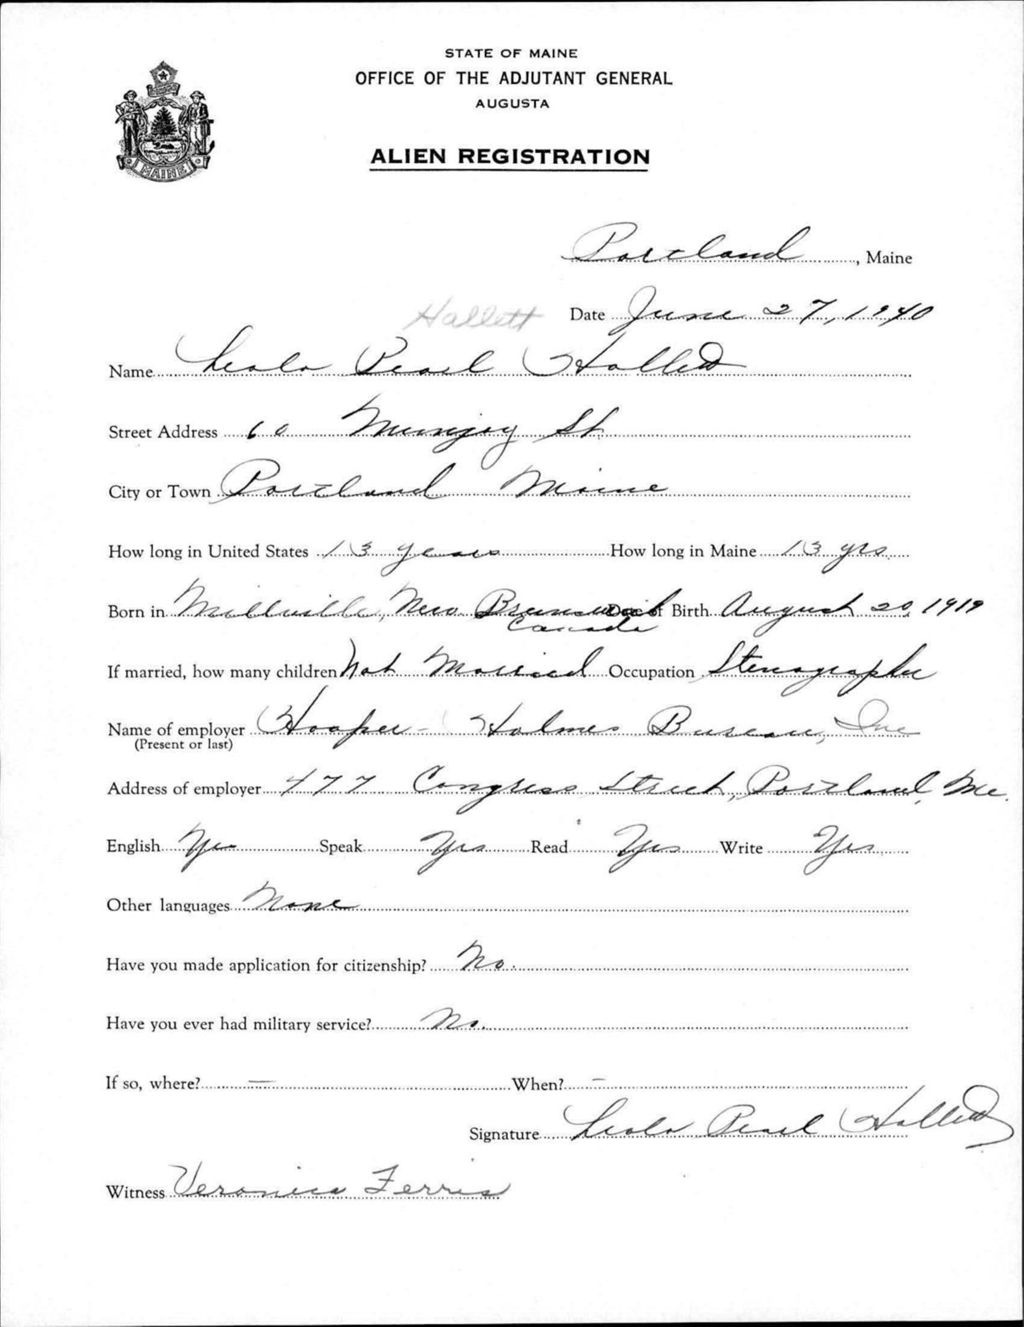 STATE OF MAINE
OFFICE OF THE ADJUTANT GENERAL
AUGUSTA
ALIEN REGISTRATION
MAINE
Portland, Maine
Hallett
Date June 27, 1940
Name Leola Pearl Hallett
Street Address 60 Munjoy St.
City or Town Portland Maine
How long in United States 13 years How long in Maine 13 yrs
Born in Millville, New Brunswick Date of Birth August 20, 1919
Canada
If married, how many children Not Married Occupation Stenographer
Name of employer Hooper-Holmes Bureau, Inc
(Present or last)
Address of employer 477 Congress Street, Portland, Me.
English Yes Speak Yes Read Yes Write Yes
Other languages None
Have you made application for citizenship? No.
Have you ever had military service? No.
If so, where? — When? —
Signature Leola Pearl Hallett
Witness Veronica Ferris